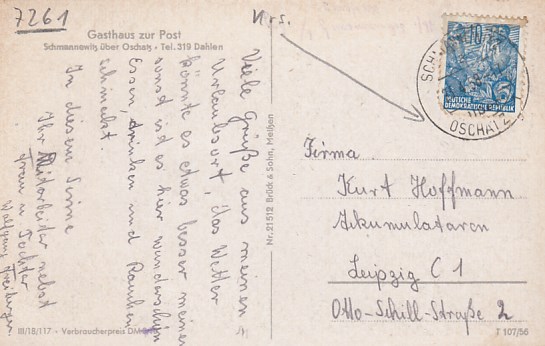 7261
Gasthaus zur Post
Schmannewitz über Oschatz • Tel. 319 Dahlen
Viele Grüße aus meinem
Urlaubsort, das Wetter
könnte es etwas besser meinen
sonst ist es hier wunderschön
Essen, trinken und Rauchen
schmeckt.
In diesem Sinne
Ihr Mitarbeiter nebst
Frau u. Tochter
Wolfgang
III/18/117 • Verbraucherpreis DM
Nr. 21512 Brück & Sohn, Meißen
DEUTSCHE
DEMOKRATISCHE REPUBLIK
OSCHATZ
Firma
Kurt Hoffmann
Akkumulatoren
Leipzig C 1
Otto-Schill-Straße 2
T 107/56